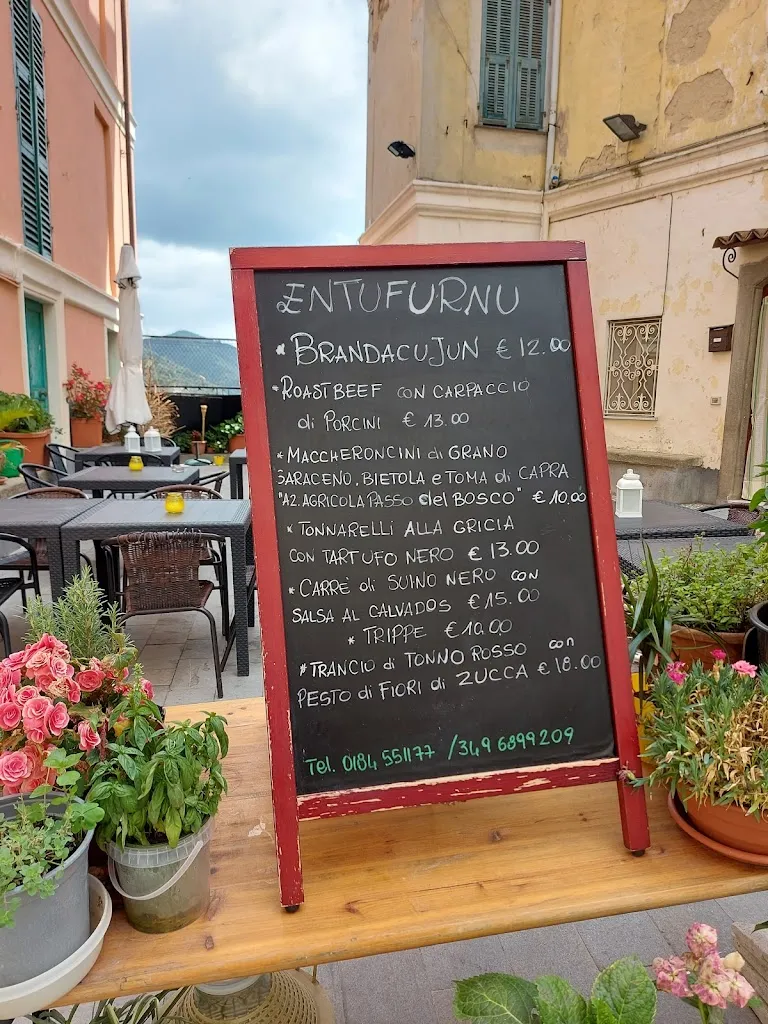 ENTUFURNU
* BRANDACUJUN € 12.00
* ROASTBEEF CON CARPACCIO
di PORCINI € 13.00
* MACCHERONCINI di GRANO
SARACENO, BIETOLA e TOMA di CAPRA
"AZ. AGRICOLA PASSO del BOSCO" € 10,00
* TONNARELLI ALLA GRICIA
CON TARTUFO NERO € 13.00
* CARRE' di SUINO NERO CON
SALSA AL CALVADOS € 15.00
* TRIPPE € 10.00
* TRANCIO di TONNO ROSSO con
PESTO di FIORI di ZUCCA € 18.00
Tel. 0184 551177 / 349 6899209